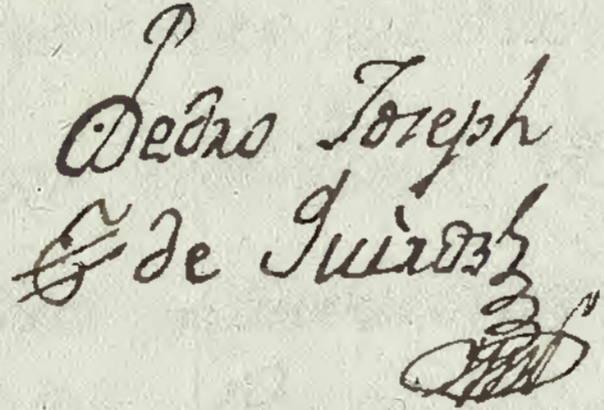 Pedro Joseph
de Quiròs